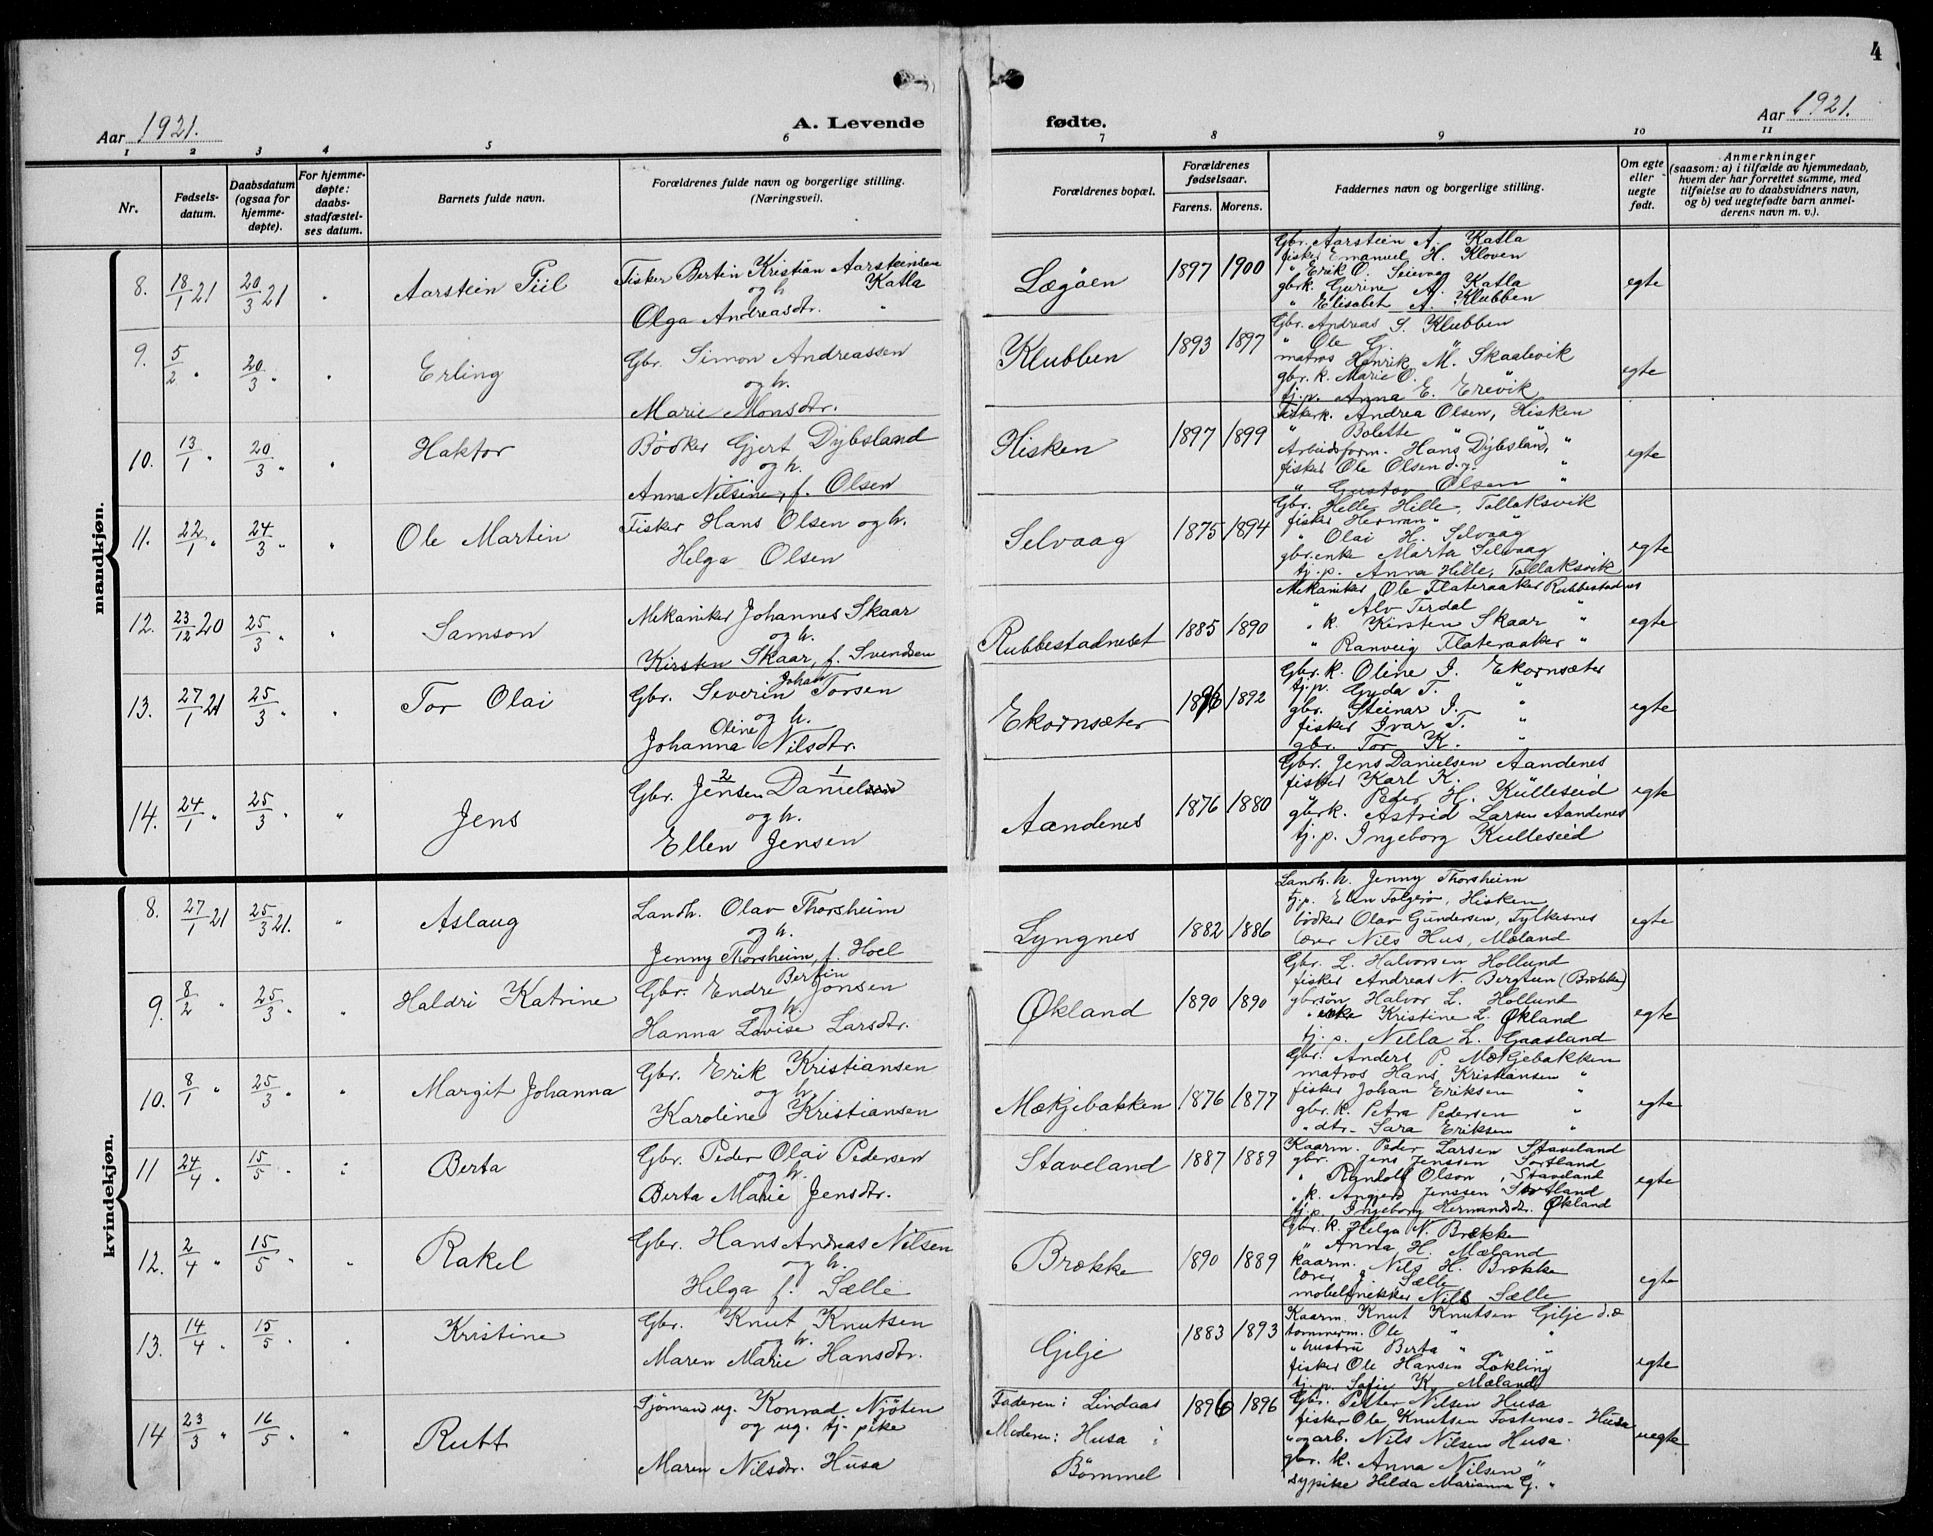 4
Aar 1921.
A. Levende
fødte.
Aar 1921.
1 2 3 4 5 6 7 8 9 10 11
Nr.
Fødsels-
datum.
Daabsdatum
(ogsaa for
hjemme-
døpte).
For hjemme-
døpte:
daabs-
stadfæstel-
ses datum.
Barnets fulde navn.
Forældrenes fulde navn og borgerlige stilling.
(Næringsvei).
Forældrenes bopæl.
Forældrenes
fødselsaar.
Farens. Morens.
Faddernes navn og borgerlige stilling.
Om egte
eller
uegte
født.
Anmerkninger
(saasom: a) i tilfælde av hjemmedaab,
hvem der har forrettet samme, med
tilføielse av to daabsvidners navn,
og b) ved uegtefødte barn anmel-
derens navn m. v.).
mandkjøn.
8. 18/1 21 20/3 21 " Aarstein Piil
Fisker Bertin Kristian Aarsteinsen
og h. Katla
Olga Andreasdtr. "
Lægøen 1897 1900
Gbr. Aarstein A. Katla
fisker Emanuel H. Kloven
" Erik O. Seievåg
gbrk. Gurine A. Katla
" Elisabet A. Klubben
egte
9. 5/2 " 20/3 " " Erling
Gbr. Simon Andreassen
og h.
Marie Monsdtr.
Klubben 1893 1897
Gbr. Andreas S. Klubben
" Ole G. "
matros Henrik M. Skaalevik
gbr. k. Marie O. "
tj.p. Anna E. Erevik
egte
10. 13/1 " 20/3 " " Haktor
Bødker Gjert Dybsland
og h.
Anna Nilsine, f. Olsen
Hisken 1897 1899
Fiskerk. Andrea Olsen, Hisken
" Bolette " "
Arbeidsform. Hans Dybsland, "
fisker Ole Olsen d.y. "
" Gustav Olsen "
egte
11. 22/1 " 24/3 " " Ole Martin
Fisker Hans Olsen og h.
Helga Olsen
Selvaag 1875 1894
Gbr. Helle Hille, Tollaksvik
fisker Herman " "
" Olai H. Selvaag
gbr.enke Marta Selvaag
tj.p. Anna Hille, Tollaksvik
egte
12. 23/12 20 25/3 " " Samson
Mekaniker Johannes Skaar
og h.
Kirsten Skaar, f. Svendsen
Rubbestadneset 1885 1890
Mekaniker Ole Flateraaker Rubbestadnes
" Alv Terdal "
" k. Kirsten Skaar "
" Ranveig Flateraaker "
egte
13. 27/1 21 25/3 " " Tor Olai
Johan
Gbr. Severin Torsen
og h.
Oline
Johanna Nilsdtr.
Ekornsæter 1896 1892
Gbr. k. Oline I. Ekornsæter
tj.p. Gyda T. "
gbr. Steinar I. "
fisker Ivar T. "
gbr. Tor K. "
egte
14. 24/1 " 25/3 " " Jens
2 1
Gbr. Jensen Danielsen
og h.
Ellen Jensen
Aandenes 1876 1880
Gbr. Jens Danielsen Aandenes
fisker Karl K. "
" Peder H. Kulleseid
gbrk. Astrid Larsen Aandenes
tj.p. Ingeborg Kulleseid
egte
kvindekjøn.
8. 27/1 21 25/3 21. " Aslaug
Landh. Olav Thorsheim
og h.
Jenny Thorsheim, f. Hoel
Lyngnes 1882 1886
Landh. h. Jenny Thorsheim
tj.p. Elen Folgerø, Hisken
bødker Olav Gundersen, Fylkesnes
lærer Nils Hus, Mæland
egte
9. 8/2 " 25/3 " " Haldri Katrine
Bertin
Gbr. Endre Jonsen
og h.
Hanna Lovise Larsdtr.
Økland 1890 1890
Gbr. L. Halvorsen Hollund
fisker Andreas N. Bergtun (Brække)
gbrsøn Halvor L. Hollund
" enke Kristine L. Økland
tj.p. Nilla L. Gaasland
egte
10. 8/1 " 25/3 " " Margit Johanna
Gbr. Erik Kristiansen
og h.
Karoline Kristiansen
Mækjebakken 1876 1877
Gbr. Anders P. Mækjebakken
matros Hans Kristiansen "
fisker Johan Eriksen "
gbr. k. Petra Pedersen "
" dtr. Sara Eriksen "
egte
11 24/4 " 15/5 " " Berta
Gbr. Peder Olai Pedersen
og h.
Berta Marie Jensdtr.
Staveland 1887 1889
Kaarm. Peder Larsen Staveland
gbr. Jens Jenssen Sortland
" Randolf Olson, Staveland
" k. Anggerd Jenssen Sortland
tj.p. Ingeborg Hermandsdtr. Økland
egte
12. 2/4 " 15/5 " " Rakel
Gbr. Hans Andreas Nilsen
og h.
Helga f. Sælle
Brække 1890 1889
Gbr. k. Helga N. Brække
" Anna H. Mæland
kaarm. Nils H. Brække
lærer J. Sælle
møbelsnekker Nils Sælle
egte
13. 14/4 " 15/5 " " Kristine
Gbr. Knut Knutsen
og h.
Maren Marie Hansdtr.
Gilje 1883 1893
Kaarm. Knut Knutsen Gilje d.æ
tømmerm. Ole " "
" hustru Berta " "
fisker Ole Hansen Løkling
tj.p. Sofie K. Mæland
egte
14 23/3 " 16/5 " " Rutt
Sjømand ug. Konrad Njøten
og ug. tj. pike
Maren Nilsdtr. Husa
Faderen: Lindaas
Moderen: Husa
Bømmel
1896 1896
Gbr. Petter Nilsen Husa
fisker Ole Knutsen Fostenes - Husa
" ogarb. Nils Nilsen Husa.
gbr. k. Anna Nilsen "
sypike Hilda Marianna G. "
uegte